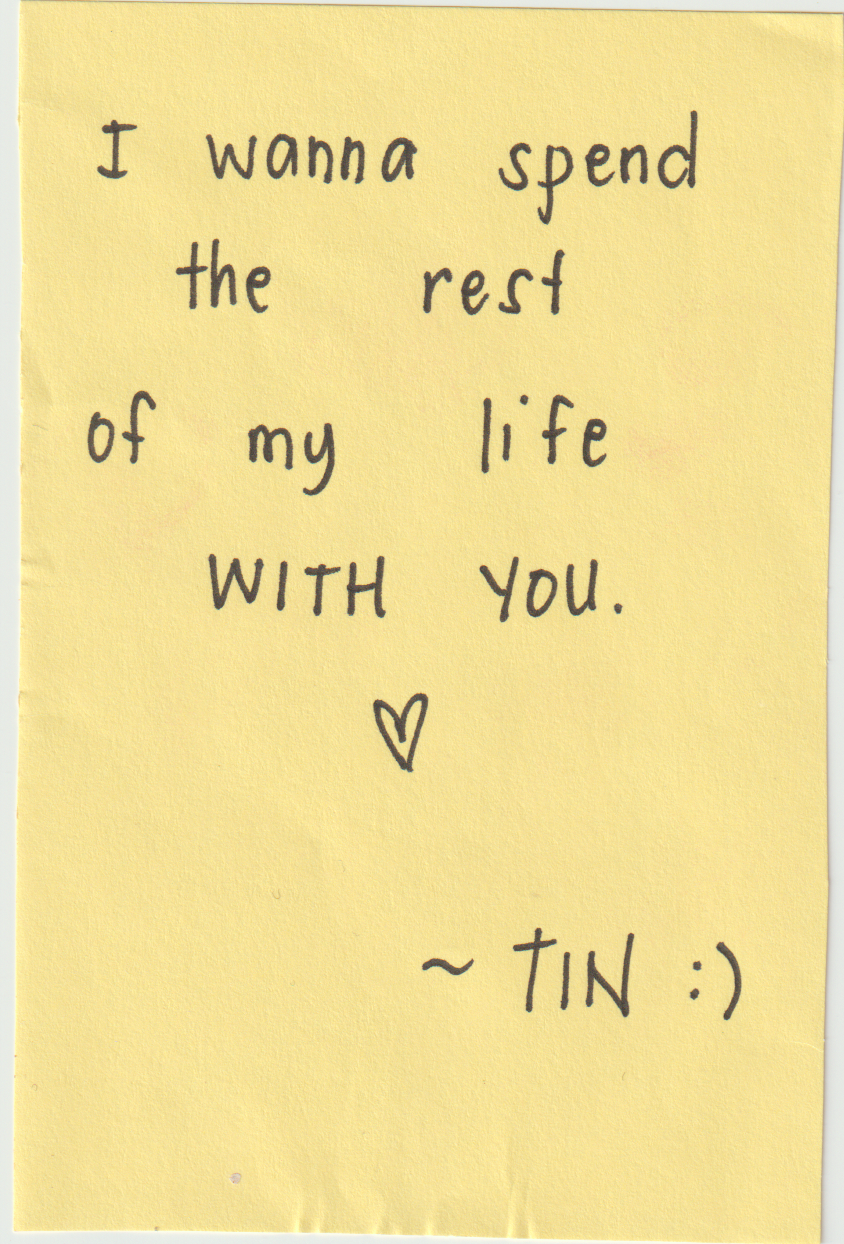 I wanna spend
the rest
of my life
WITH YOU.
♡
~ TIN :)